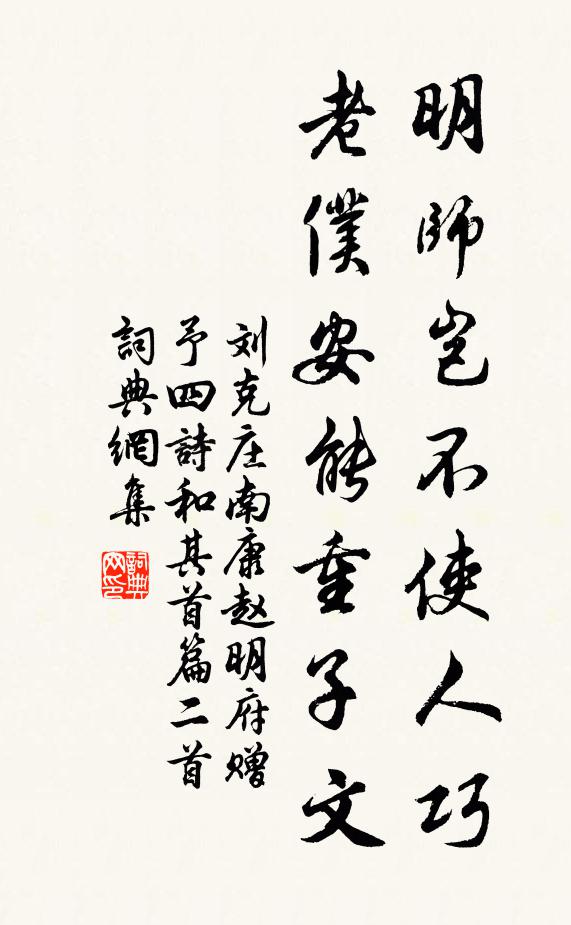 明師豈不使人巧
老僕安能重子文
刘克庄南康赵明府赠
予四詩和其首篇二首
詞典網集
詞典
网印